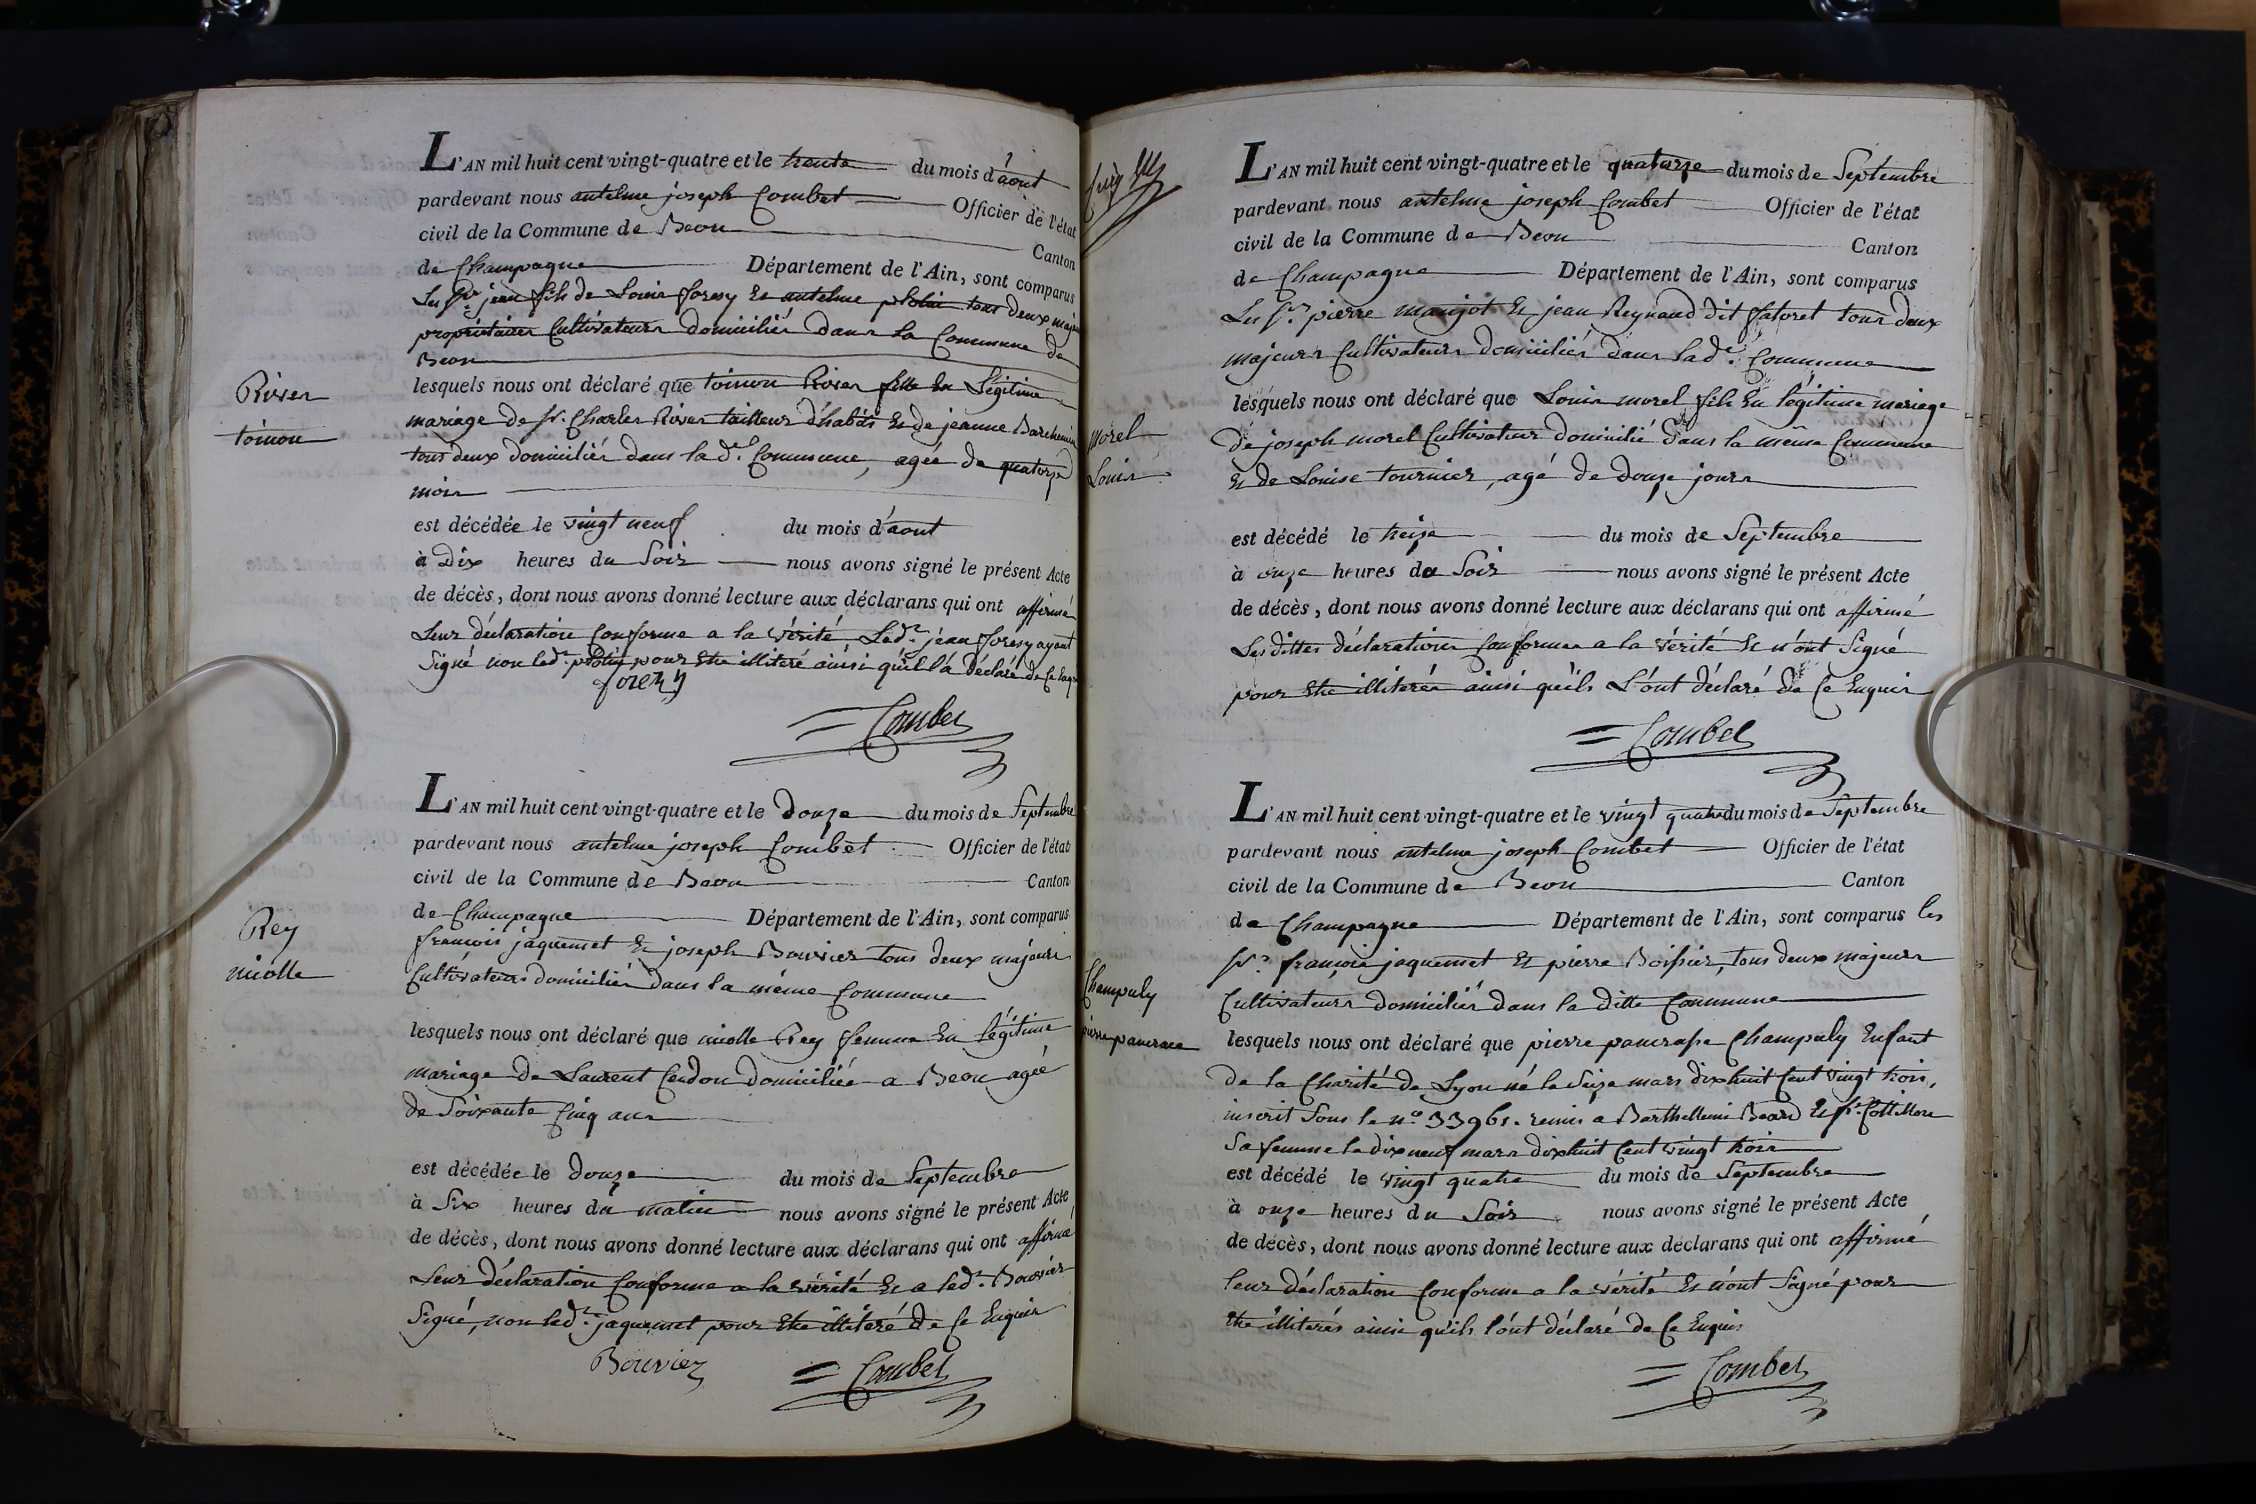 L'AN mil huit cent vingt-quatre et le trente du mois d'août
pardevant nous antelme joseph Combet Officier de l'état
civil de la Commune de Beon Canton
de Champagne Département de l'Ain, sont comparus
Les Srs jean fils de Louis foresy Et antelme tous deux majeurs
propriétaires Cultivateurs domiciliés dans la Commune de
Beon
Riven
toinon
lesquels nous ont déclaré que toinon River fille En Légitime
mariage de Sr. Charles River tailleur d'habits Et de jeanne
tous deux domiciliés dans lade. Commune, agée de quatorze
mois
est décédée le vingt neuf du mois d'aout
à Dix heures du Soir nous avons signé le présent Acte
de décès, dont nous avons donné lecture aux déclarans qui ont affirmé
Leur déclaration Conforme a la vérité Ledt. jean foresy ayant
Signé non ledt. pour Etre illiteré ainsi qu'il l'a déclaré de Ce
Combet
L'AN mil huit cent vingt-quatre et le Douze du mois de Septembre
pardevant nous antelme joseph Combet Officier de l'état
civil de la Commune de Beon Canton
de Champagne Département de l'Ain, sont comparus
françois jaquemet Et joseph Bouvier tous deux majeurs
Cultivateurs domiciliés dans la même Commune
Rey
niolle
lesquels nous ont déclaré que niolle Rey femme En légitime
mariage de Laurent Cendon domiciliée a Beon agée
de Soixante Cinq ans
est décédée le douze du mois de Septembre
à Six heures du matin nous avons signé le présent Acte
de décès, dont nous avons donné lecture aux déclarans qui ont affirmé
Leur déclaration Conforme a la vérité Et a ledt. Bouvier
Signé, non ledt. jaquemet pour Etre illiteré de Ce Enquis
Bouvier Combet
L'AN mil huit cent vingt-quatre et le quatorze du mois de Septembre
pardevant nous antelme joseph Combet Officier de l'état
civil de la Commune de Beon Canton
de Champagne Département de l'Ain, sont comparus
Les Srs. pierre manjot Et jean Reynaud dit fatoret tous deux
majeurs Cultivateurs domiciliés dans lade. Commune
morel
Louis
lesquels nous ont déclaré que Louis morel fils En légitime mariage
de joseph morel Cultivateur domicilié dans la même Commune
Et de Louise tournier, agé de Douze jours
est décédé le treize du mois de Septembre
à onze heures du Soir nous avons signé le présent Acte
de décès, dont nous avons donné lecture aux déclarans qui ont affirmé
Les dittes déclarations Conformes a la vérité Et n'ont Signé
pour Etre illiterés ainsi qu'ils L'ont déclaré de Ce Enquis
Combet
L'AN mil huit cent vingt-quatre et le vingt quatre du mois de Septembre
pardevant nous antelme joseph Combet Officier de l'état
civil de la Commune de Beon Canton
de Champagne Département de l'Ain, sont comparus les
Srs. françois jaquemet Et pierre Boissier, tous deux majeurs
Cultivateurs domiciliés dans la ditte Commune
Champuly
pierre pancrace
lesquels nous ont déclaré que pierre pancrasse Champuly Enfant
de la Charité de Lyon né le Seize mars dixhuit Cent vingt trois,
inscrit Sous le no. 33961. remis a Barthellemi Beard Et fse. Cottillon
Sa femme le dixneuf mars dixhuit Cent vingt trois
est décédé le vingt quatre du mois de Septembre
à onze heures du Soir nous avons signé le présent Acte
de décès, dont nous avons donné lecture aux déclarans qui ont affirmé
leur déclaration Conforme a la vérité Et n'ont Signé pour
Etre illiterés ainsi qu'ils l'ont déclaré de Ce Enquis
Combet